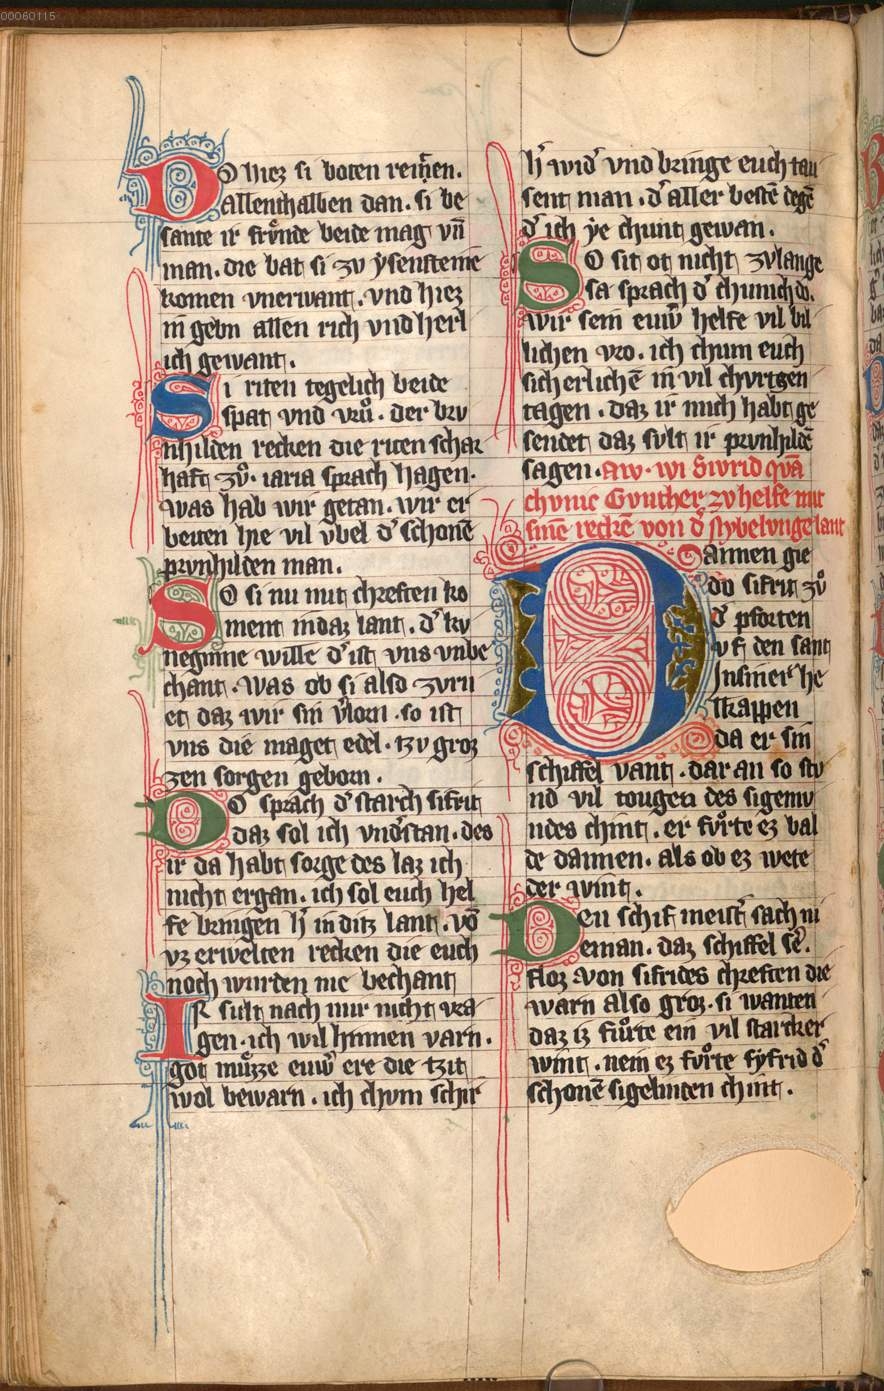 00060115
Do hiez si boten reiten.
allenthalben dan. si be
sante ir frůnde beide mag vn̄
man. die bat si zv ysensteine
komen vnerwant. vnd hiez
in gebn allen rich vnd herl
ich gewant.
Si riten tegelich beide
spat vnd vrů. der brv
nhilden recken die riten schar
haft zů. iaria sprach hagen.
was hab wir getan. wir er
beiten hie vil vbel d' schonē
prvnhilden man.
So si nu mit chreften ko
ment in daz lant. d' kv
neginne wille d' ist vns vnbe
chant. was ob si also zvrn
et daz wir sin v'lorn. so ist
vns die maget edel. tzv groz
zen sorgen geborn.
Do sprach d' starch sifrit
daz sol ich vnd'stan. des
ir da habt sorge des laz ich
nicht ergan. ich sol euch hel
fe bringen h' in ditz lant. vō
vz erwelten recken die euch
noch wurden nie bechant
Ir sult nach mir nicht vra
gen. ich wil hinnen varn.
got můzze euw' ere die tzit
wol bewarn. ich chvm schir
h' wid' vnd bringe euch tau
sent man. d' aller bestē degē
d' ich ye chunt gewan.
So sit ot nicht zvlange
sa sprach d' chunich do.
wir sein euw' helfe vil bil
lichen vro. ich chum euch
sicherlichē in vil chvrtzen
tagen. daz ir mich habt ge
sendet daz svlt ir prvnhildē
sagen. Aw. wi Siwrid qvā
chvnic Gvnther zv helfe mit
sinē reckē von d' nybelvnge lant
Dannen gie
do sifrit zů
d' pforten
vf den sant
In siner he
lkappen
da er sin
schiffel vant. dar an so stv
nd vil tougen des sigemv
ndes chint. er fvͦrte ez bal
de dannen. als ob ez wete
der wint.
Den schif meist' sach ni
eman. daz schiffel se'.
floz. von sifrides chreften die
warn also groz. si wanten
daz iz fůrte ein vil starcker
wint. nein ez fvͦrte syfrid d'
schonē sigelinten chint.